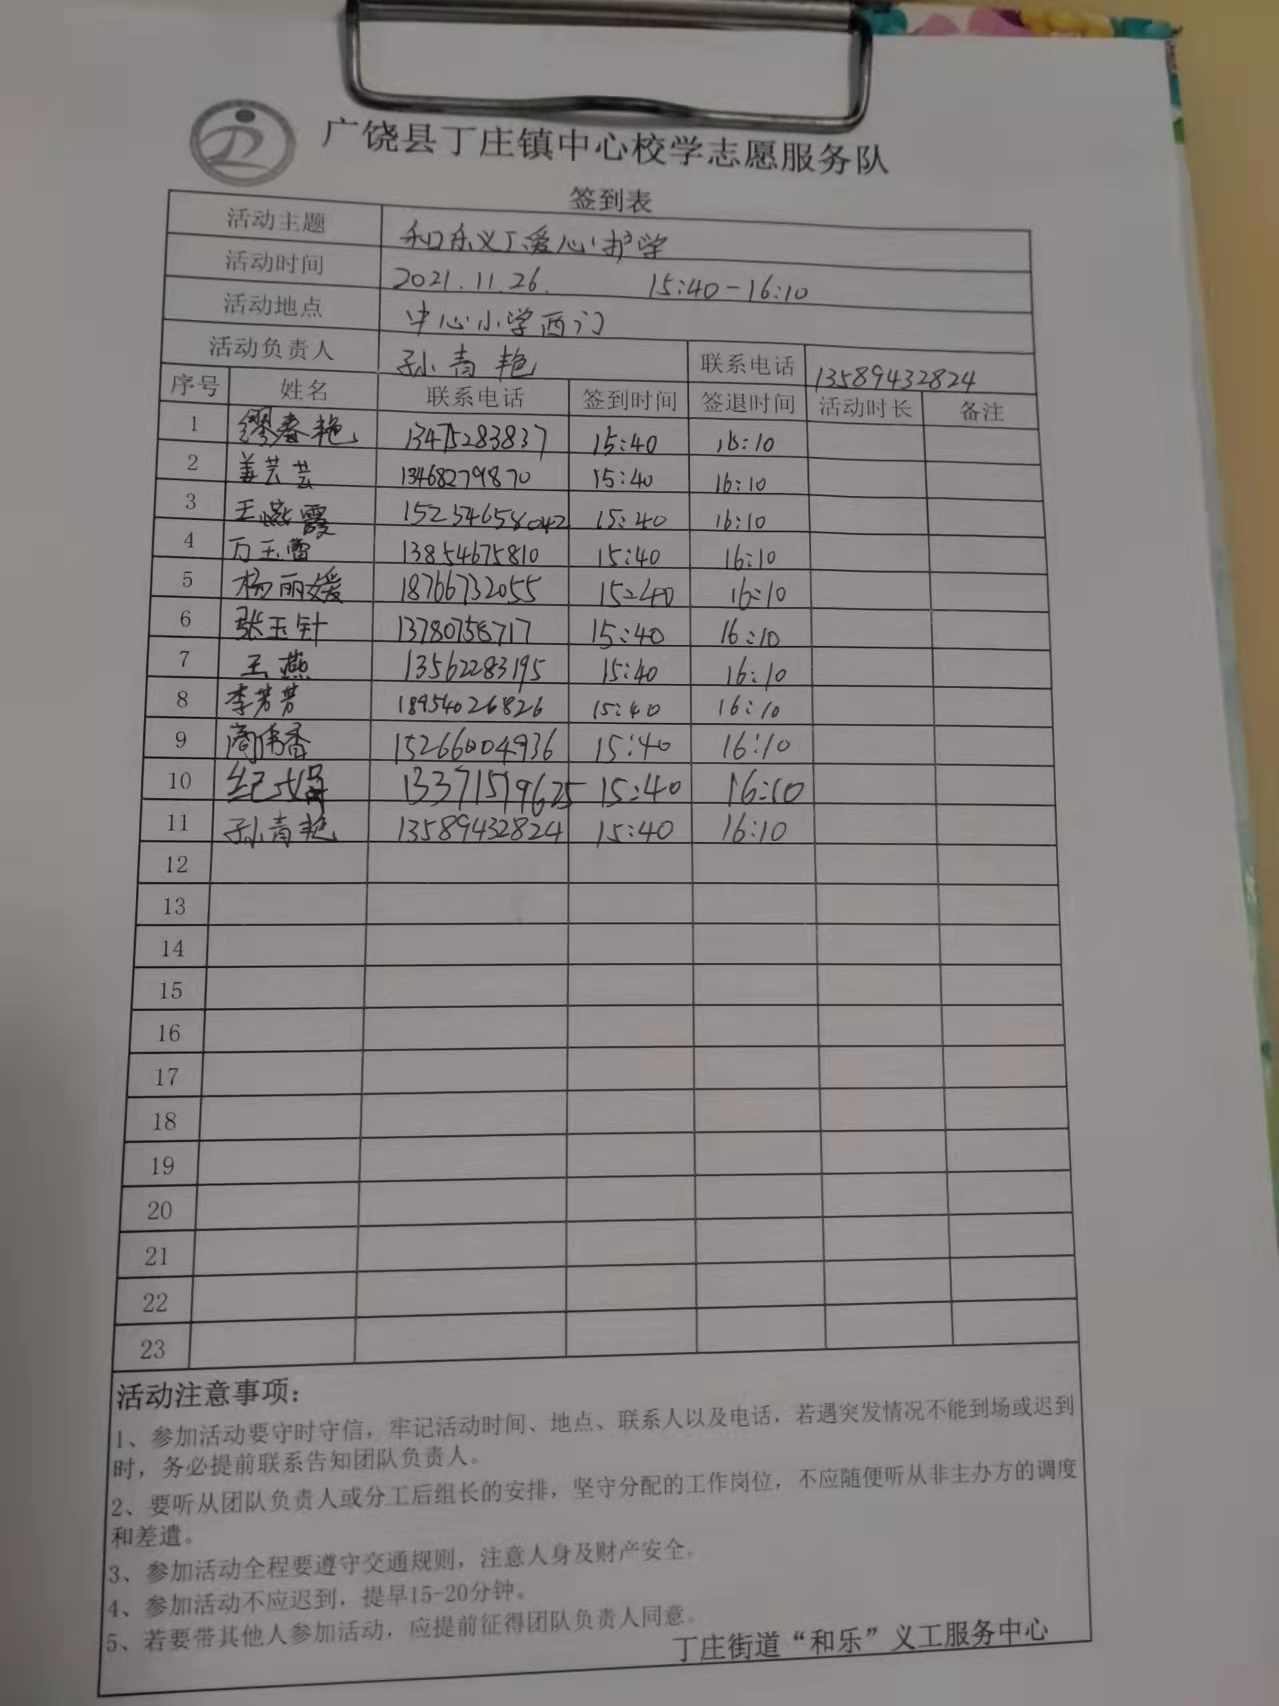 广饶县丁庄镇中心校学志愿服务队
签到表
活动主题 和乐义工爱心护学
活动时间 2021.11.26. 15:40-16:10
活动地点 中心小学西门
活动负责人 孙青艳 联系电话 13589432824
序号 姓名 联系电话 签到时间 签退时间 活动时长 备注
1 缪春艳 13475283837 15:40 16:10
2 姜芸芸 13468279870 15:40 16:10
3 王燕霞 15254658042 15:40 16:10
4 万玉蕾 13854675810 15:40 16:10
5 杨丽媛 18766732055 15:40 16:10
6 张玉针 13780758717 15:40 16:10
7 王燕 13562283195 15:40 16:10
8 李芳芳 18954026826 15:40 16:10
9 商伟香 15266004936 15:40 16:10
10 纪 13371519625 15:40 16:10
11 孙青艳 13589432824 15:40 16:10
12
13
14
15
16
17
18
19
20
21
22
23
活动注意事项：
1、参加活动要守时守信，牢记活动时间、地点、联系人以及电话，若遇突发情况不能到场或迟到
时，务必提前联系告知团队负责人。
2、要听从团队负责人或分工后组长的安排，坚守分配的工作岗位，不应随便听从非主办方的调度
和差遣。
3、参加活动全程要遵守交通规则，注意人身及财产安全。
4、参加活动不应迟到，提早15-20分钟。
5、若要带其他人参加活动，应提前征得团队负责人同意。
丁庄街道“和乐”义工服务中心